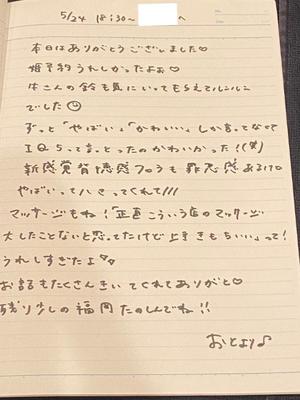 5/24 18:30~ へ
本日はありがとうございました♡
姫予約うれしかったよぉ♡
牛さんの鈴も気にいってもらえてルンルン
でした☺
ずっと「やばい」「かわいい」しか言ってなくて
IQ5って言っとったのかわいかった!(笑)
新感覚背徳感フロうも罪悪感あるけど
やばいってハマってくれて///
マッサージもね!「正直こういう店のマッサージ
大したことないと思ってたけど上手きもちいい」って!
うれしすぎたよ
お話もたくさんきいてくれてありがと♡
残り少しの福岡たのしんでね!!
おとより♪